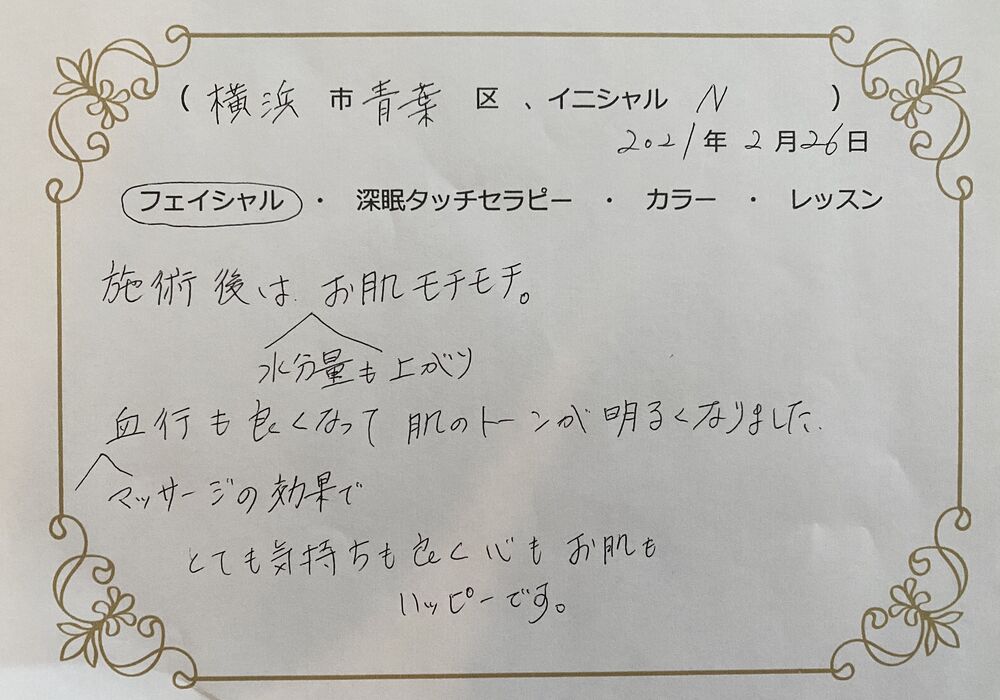 ( 横浜 市 青葉 区 、イニシャル N )
2021年 2月26日
フェイシャル ・ 深眠タッチセラピー ・ カラー ・ レッスン
施術後は お肌モチモチ。
水分量も上がり
血行も良くなって 肌のトーンが明るくなりました.
マッサージの効果で
とても気持ちも良く心も お肌も
ハッピーです。